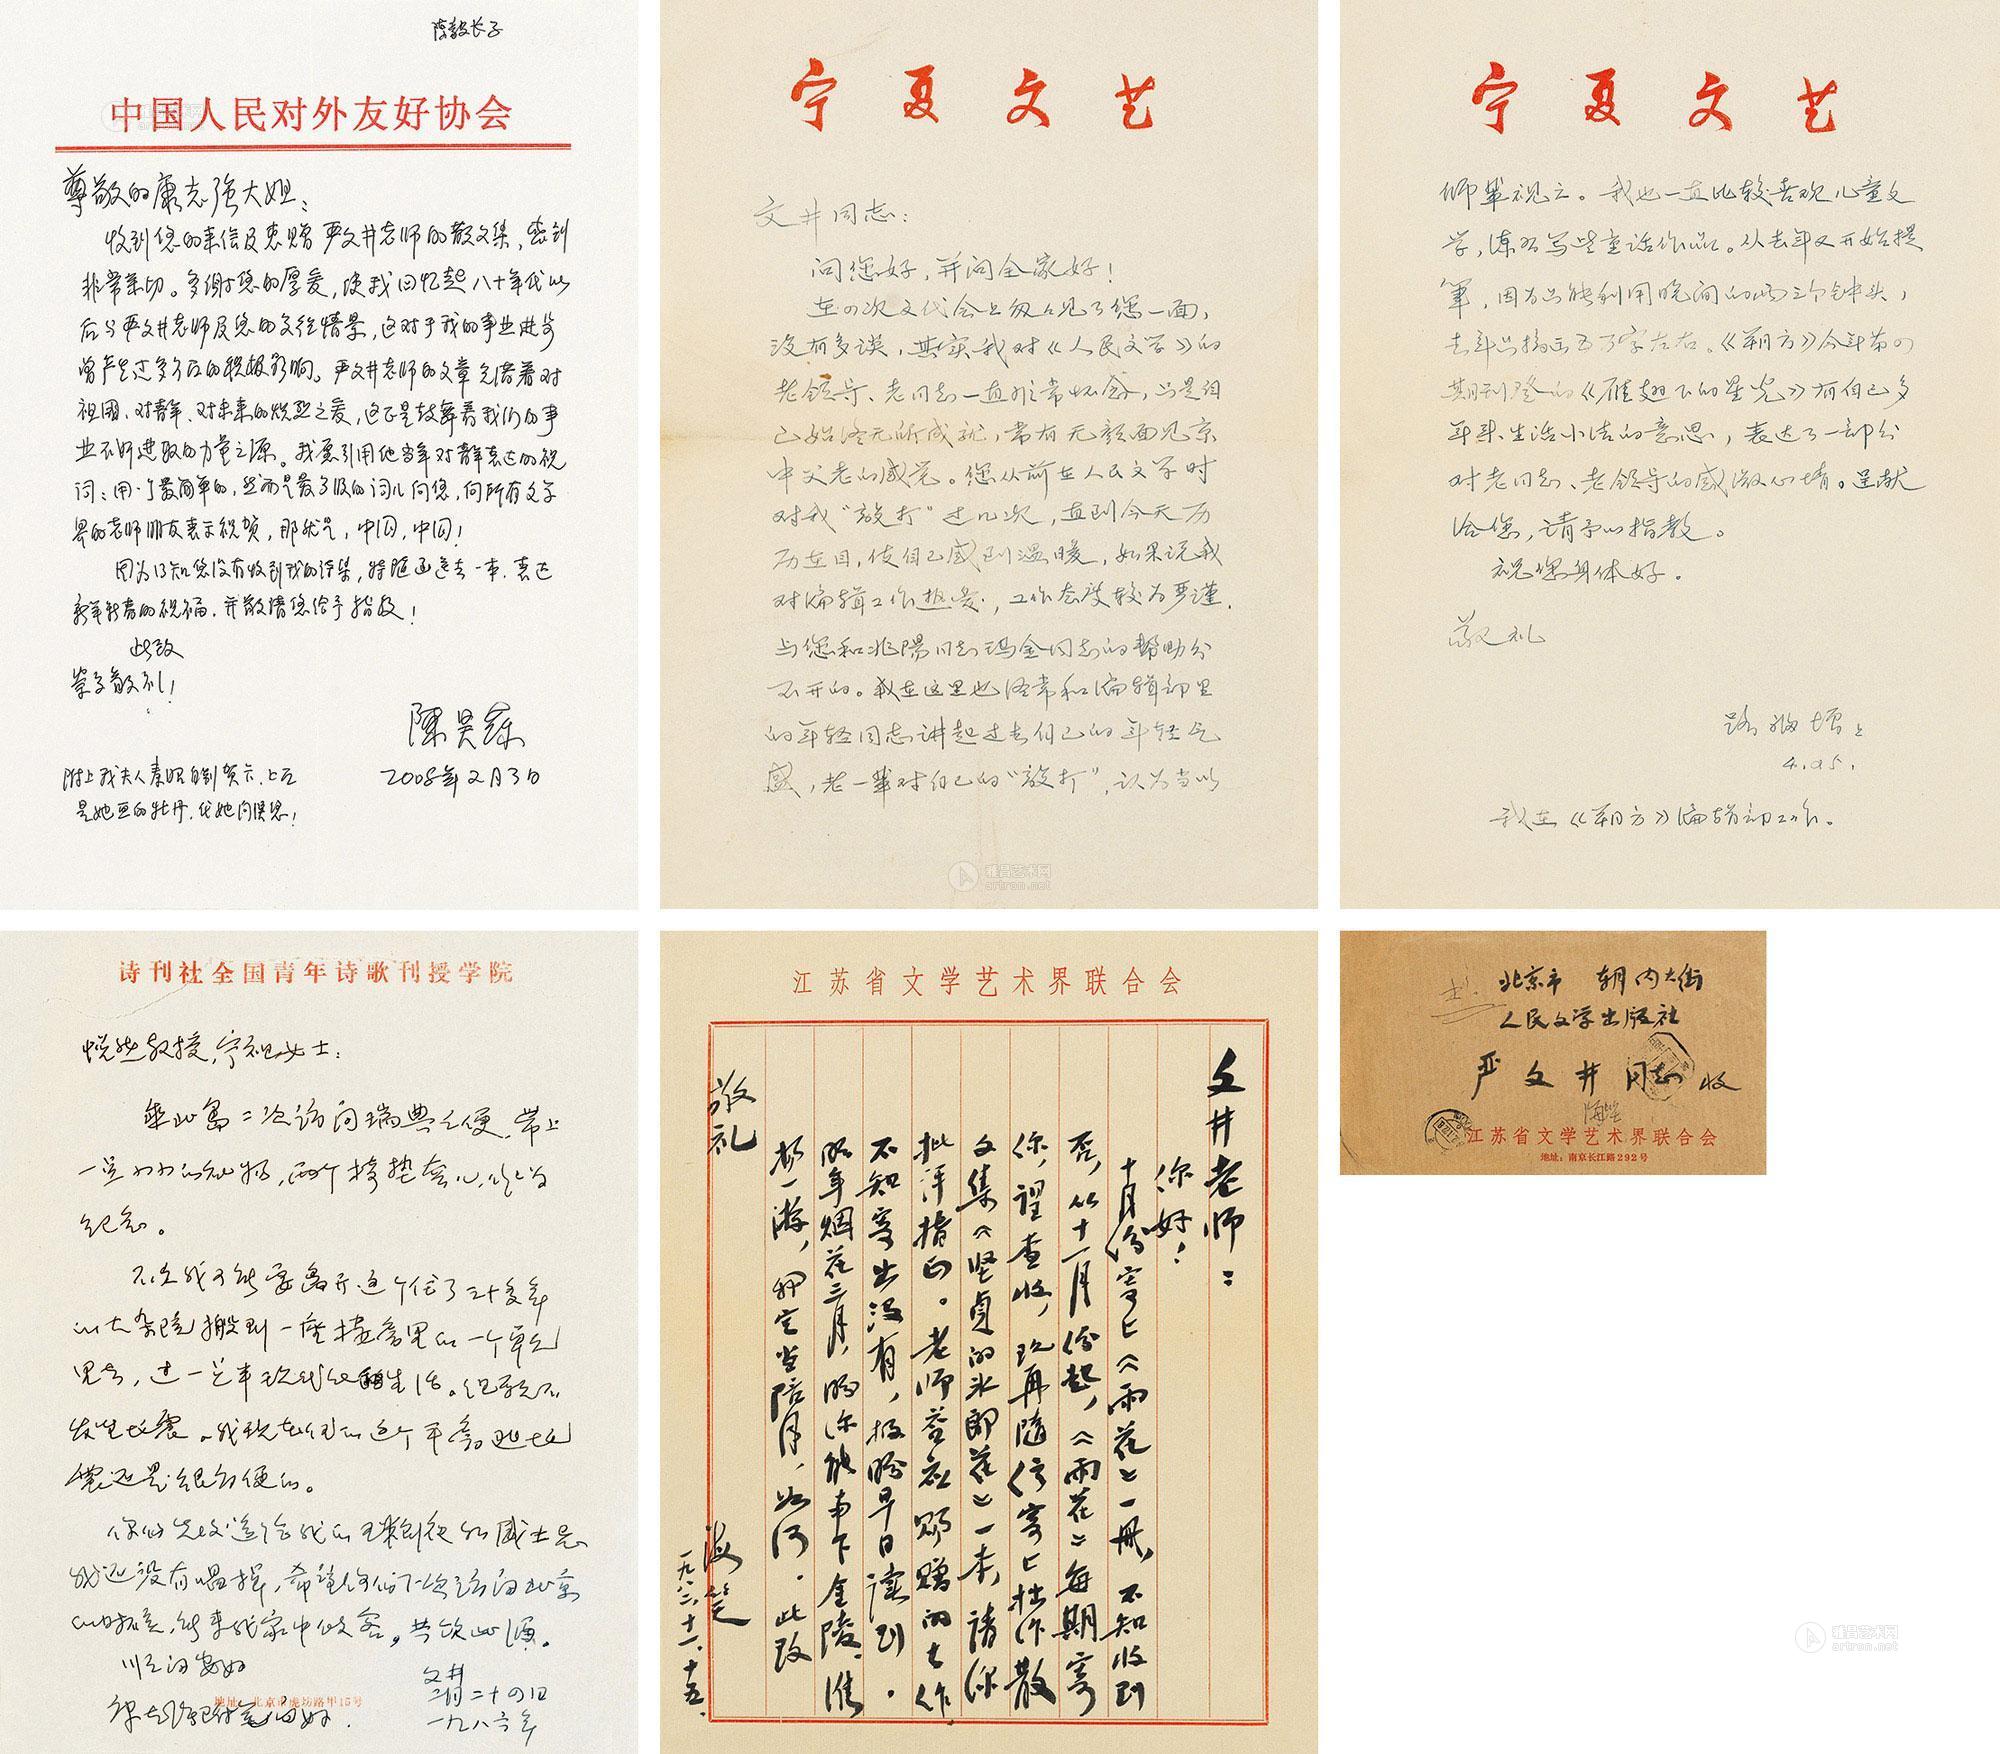 陈毅长子
中国人民对外友好协会
尊敬的康志强大姐：
收到您的来信及惠赠严文井老师的散文集，感到
非常亲切。多谢您的厚爱，使我回忆起八十年代以
后与严文井老师及您的交往情景，这对于我的事业进步
曾产生过多方面的积极影响。严文井老师的文章充满着对
祖国、对青年、对未来的炽烈之爱，这正是鼓舞着我们的事
业不断进取的力量之源。我愿引用他当年对青年表达的祝
词：用一个最简单的，然而是最高级的词儿向您，向所有文学
界的老师朋友表示祝贺，那就是，中国，中国！
因为得知您没有收到我的诗集，特随函送去一本，表达
新年新春的祝福，并敬请您给予指教！
此致
崇高敬礼！
陈昊苏
2008年2月3日
附上我夫人秦昭自制贺卡，上面
是她画的牡丹，代她问候您！
宁夏文艺
文井同志：
问您好，并问全家好！
在四次文代会上匆匆见了您一面，
没有多谈，其实我对《人民文学》的
老领导、老同志一直非常怀念，只是自
己始终无所成就，常有无颜面见京
中父老的感觉。您从前在人民文学时
对我“敲打”过几次，直到今天历
历在目，使自己感到温暖，如果说我
对编辑工作热爱，工作态度较为严谨，
与您和兆阳同志玛金同志的帮助分
不开的。我在这里也经常和编辑部里
的年轻同志讲起过去自己的年轻气
盛，老一辈对自己的“敲打”，认为当以
宁夏文艺
师辈视之。我也一直比较喜欢儿童文
学，练习写些童话作品。从去年又开始提
笔，因为只能利用晚间的两三个钟头，
去年只搞出五万字左右。《朔方》今年第四
期刊登的《雁翅下的星光》有自己多
年来生活小结的意思，表达了一部分
对老同志、老领导的感激心情。呈献
给您，请予以指教。
祝您身体好。
敬礼
路福增上
4.25.
我在《朔方》编辑部工作。
诗刊社全国青年诗歌刊授学院
悦然教授，宁祖女士：
乘北岛二次访问瑞典之便，带上
一点小小的礼物，两个椅垫套儿，作为
纪念。
不久我可能要离开这个住了三十多年
的大杂院搬到一座楼房里的一个单元
里去，过一点半现代化的生活。但愿不
发生地震。我现在住的这个平房逃地
震还是很方便的。
你们先后送给我的王朝创视的威士忌
我还没有喝掉，希望你们下次访问北京
的时候，能来我家中做客，共饮此酒。
顺问安好
文井
二月二十四日
一九八六年
地址：北京市虎坊路甲15号
江苏省文学艺术界联合会
文井老师：
你好！
十月份寄上《雨花》一册，不知收到
否，从十一月份起，《雨花》每期寄
你，望查收，现再随信寄上拙作散
文集《坚贞的米郎花》一本，请你
批评指正。老师答应赐赠的大作，
不知寄出没有，极盼早日读到。
明年烟花三月，盼你能南下金陵，淮
扬一游，那定当陪同，如何。此致
敬礼
海笑
一九八二、十一、十五、
北京市 朝内大街
人民文学出版社
严文井同志 收
海笑
江苏省文学艺术界联合会
地址：南京长江路292号
雅昌艺术网
artron.net
雅昌艺术网
artron.net